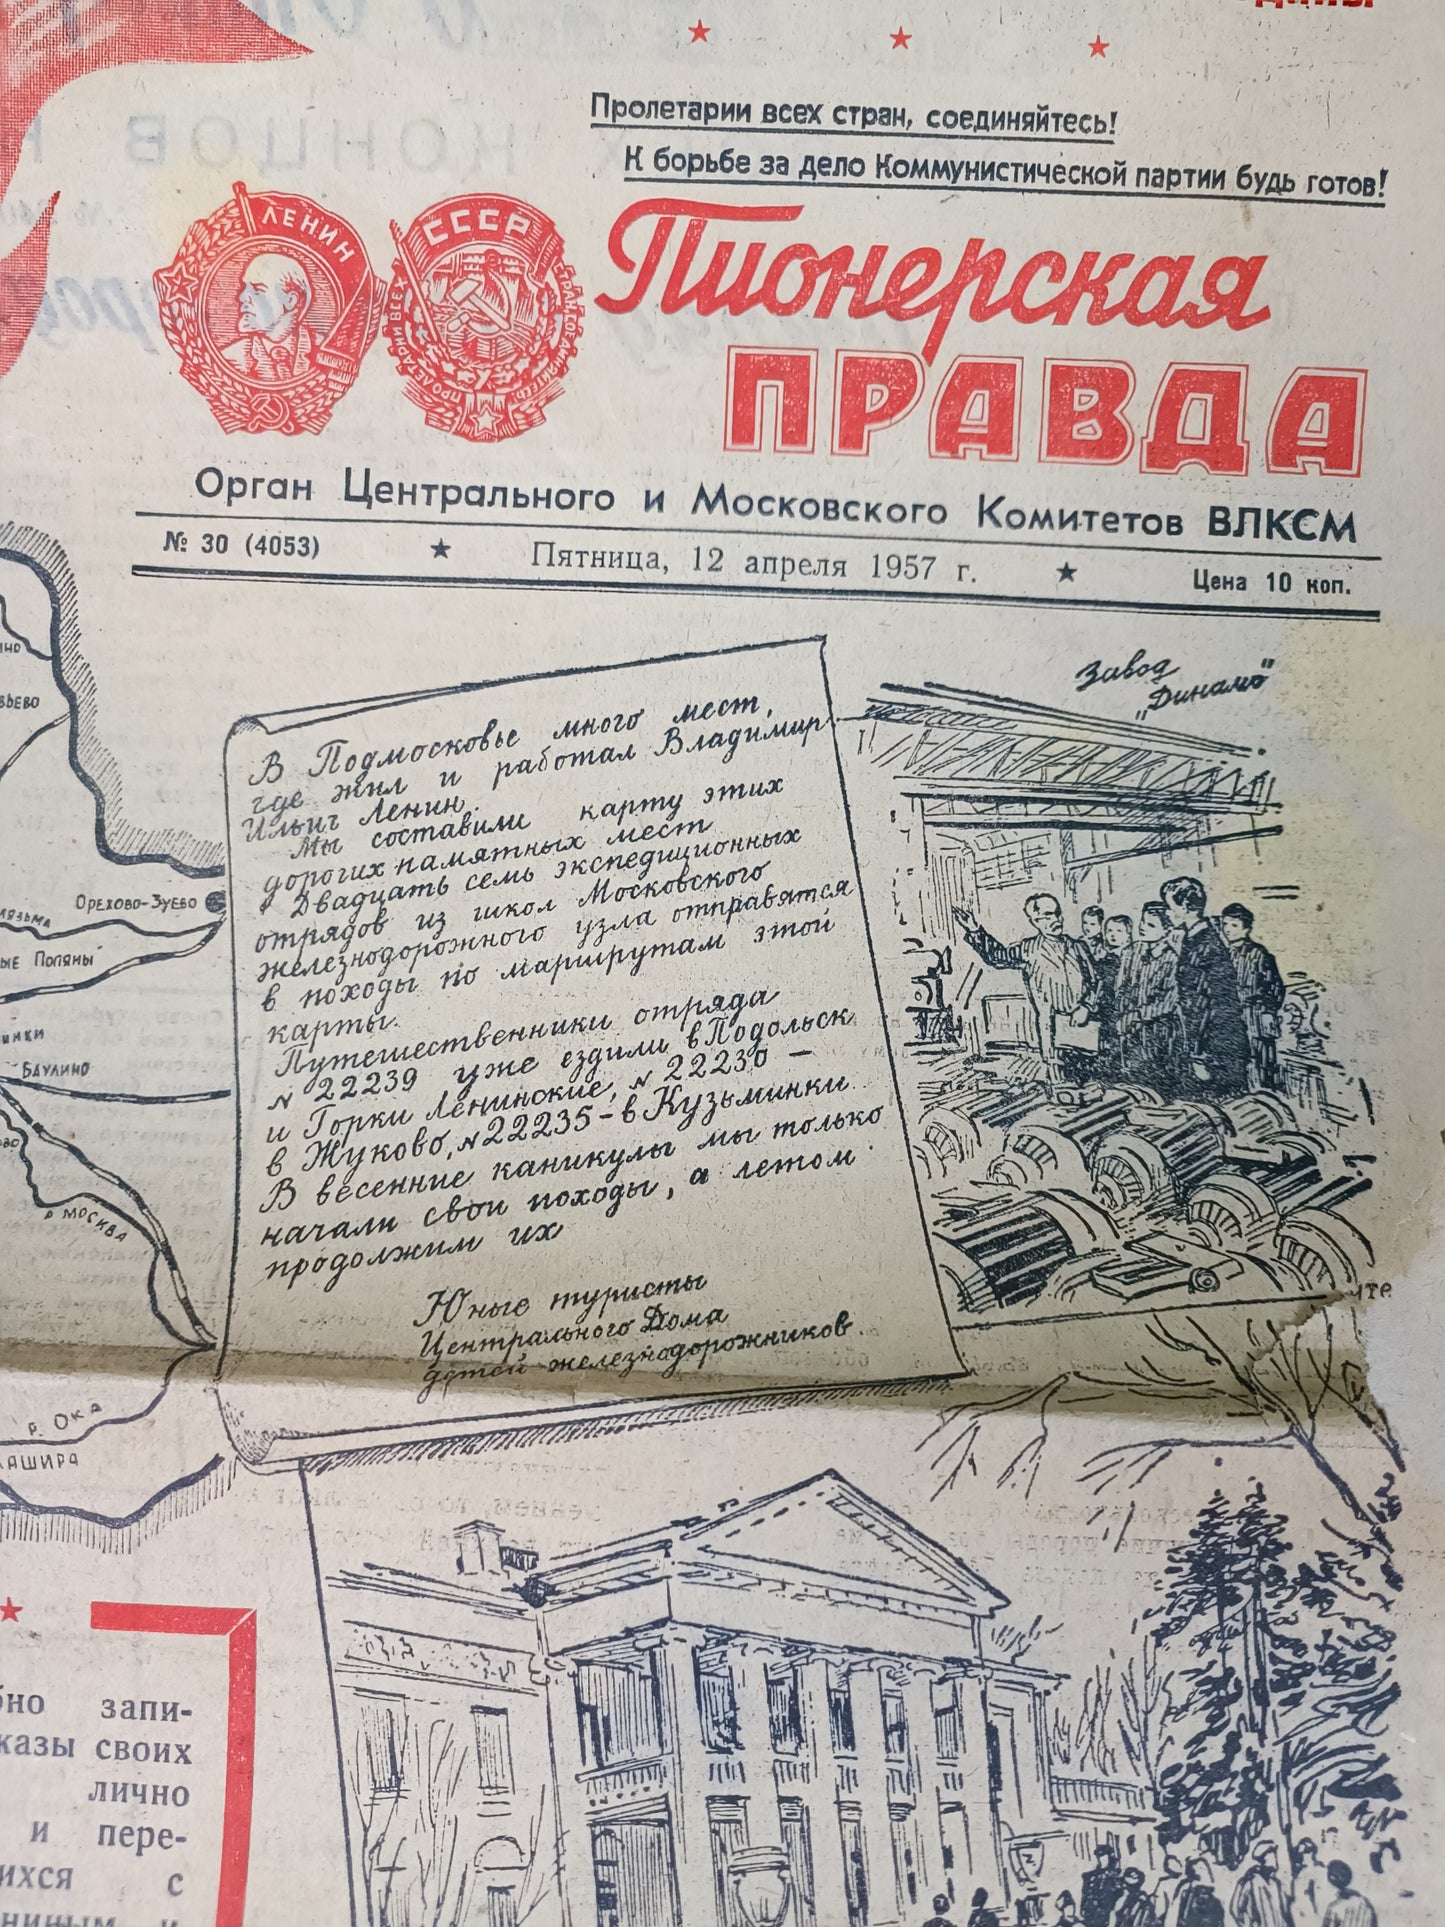 Пролетарии всех стран, соединяйтесь!
К борьбе за дело Коммунистической партии будь готов!
ЛЕНИН
СССР
Пионерская
ПРАВДА
Орган Центрального и Московского Комитетов ВЛКСМ
№ 30 (4053) ★ Пятница, 12 апреля 1957 г. ★ Цена 10 коп.
Завод
„Динамо"
В Подмосковье много мест,
где жил и работал Владимир
Ильич Ленин.
Мы составили карту этих
дорогих памятных мест
Двадцать семь экспедиционных
отрядов из школ Московского
железнодорожного узла отправятся
в походы по маршрутам этой
карты.
Путешественники отряда
№ 22239 уже ездили в Подольск
и Горки Ленинские, № 22230 —
в Жуково, № 22235 - в Кузьминки.
В весенние каникулы мы только
начали свои походы, а летом
продолжим их
Юные туристы
Центрального Дома
детей железнодорожников.
ОРЕХОВО-ЗУЕВО
ЫЕ ПОЛЯНЫ
БАУЛИНО
Р. МОСКВА
Р. ОКА
АШИРА
бно запи-
казы своих
лично
и пере-
ихся с